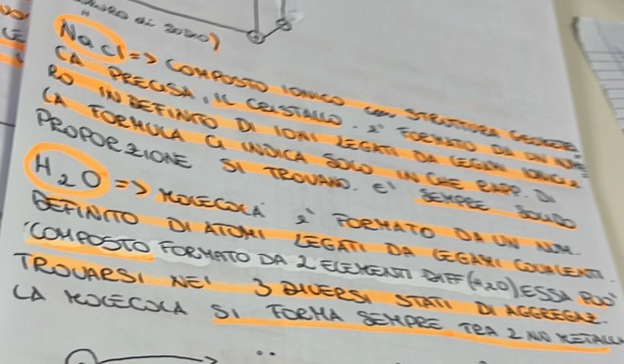 DI SODIO)
NaCl => COMPOSTO IONICO CON STRUTTURA GEOMETRI
CA PRECISA, IL CRISTALLO. E' FORMATO DA UN NUME
RO INDEFINITO DI IONI LEGATI DA LEGAMI IONICI
LA FORMULA CI INDICA SOLO IN CHE RAPP. DI
PROPORZIONE SI TROVANO. E' SEMPRE SOLIDO
H2O => MOLECOLA E' FORMATO DA UN NUM.
DEFINITO DI ATOMI LEGATI DA LEGAMI COVALENTI.
COMPOSTO FORMATO DA 2 ELEMENTI DIFF (H2O) ESSA PUO'
TROVARSI NEI 3 DIVERSI STATI DI AGGREGAZ.
LA MOLECOLA SI FORMA SEMPRE TRA 2 NN METALLI